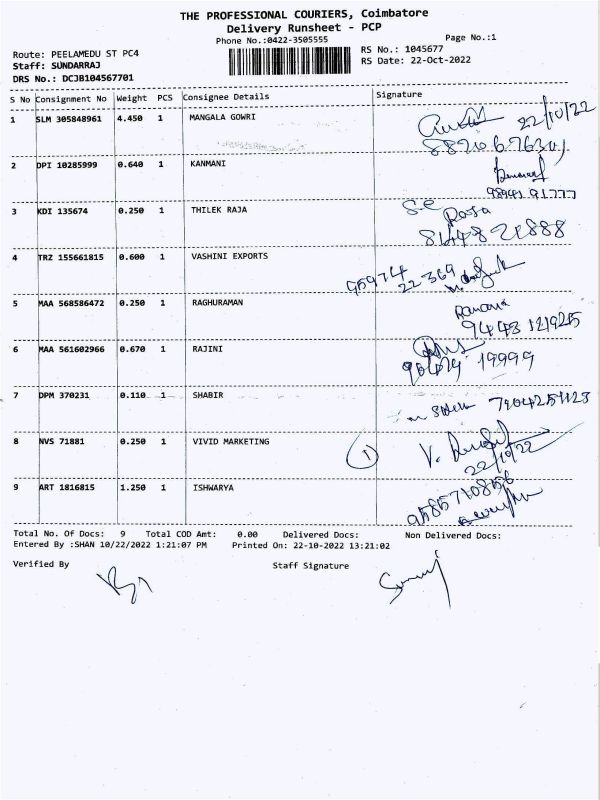 THE PROFESSIONAL COURIERS, Coimbatore
Delivery Runsheet - PCP
Phone No.:0422-3505555
Page No.:1
Route: PEELAMEDU ST PC4
RS No.: 1045677
Staff: SUNDARRAJ
RS Date: 22-Oct-2022
DRS No.: DCJB104567701
S No Consignment No Weight PCS Consignee Details Signature
1 SLM 305848961 4.450 1 MANGALA GOWRI
22/10/22
2 DPI 10285999 0.640 1 KANMANI
3 KDI 135674 0.250 1 THILEK RAJA
Raja
4 TRZ 155661815 0.600 1 VASHINI EXPORTS
5 MAA 568586472 0.250 1 RAGHURAMAN
9443 121925
6 MAA 561602966 0.670 1 RAJINI
90479 19999
7 DPM 370231 0.110 1 SHABIR
8 NVS 71881 0.250 1 VIVID MARKETING
1
22/10/22
9 ART 1816815 1.250 1 ISHWARYA
9585710856
Total No. Of Docs: 9 Total COD Amt: 0.00 Delivered Docs: Non Delivered Docs:
Entered By :SHAN 10/22/2022 1:21:07 PM Printed On: 22-10-2022 13:21:02
Verified By Staff Signature